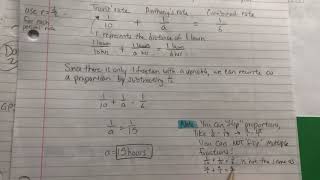 Use r = d/t
for each
person's rate
Travis' rate Anthony's rate Combined rate
1/10 + 1/a = 1/6
1 represents the distance of 1 lawn
1 lawn/10hrs + 1 lawn/a hrs = 1 lawn/6 hrs
Since there is only 1 fraction with a variable, we can rewrite as
a proportion by subtracting 1/10
1/10 + 1/a = 1/6
1/a = 1/15
a = 15 hours
Note: You can "flip" proportions,
like
You can NOT "flip" multiple
fractions!
is not the same as